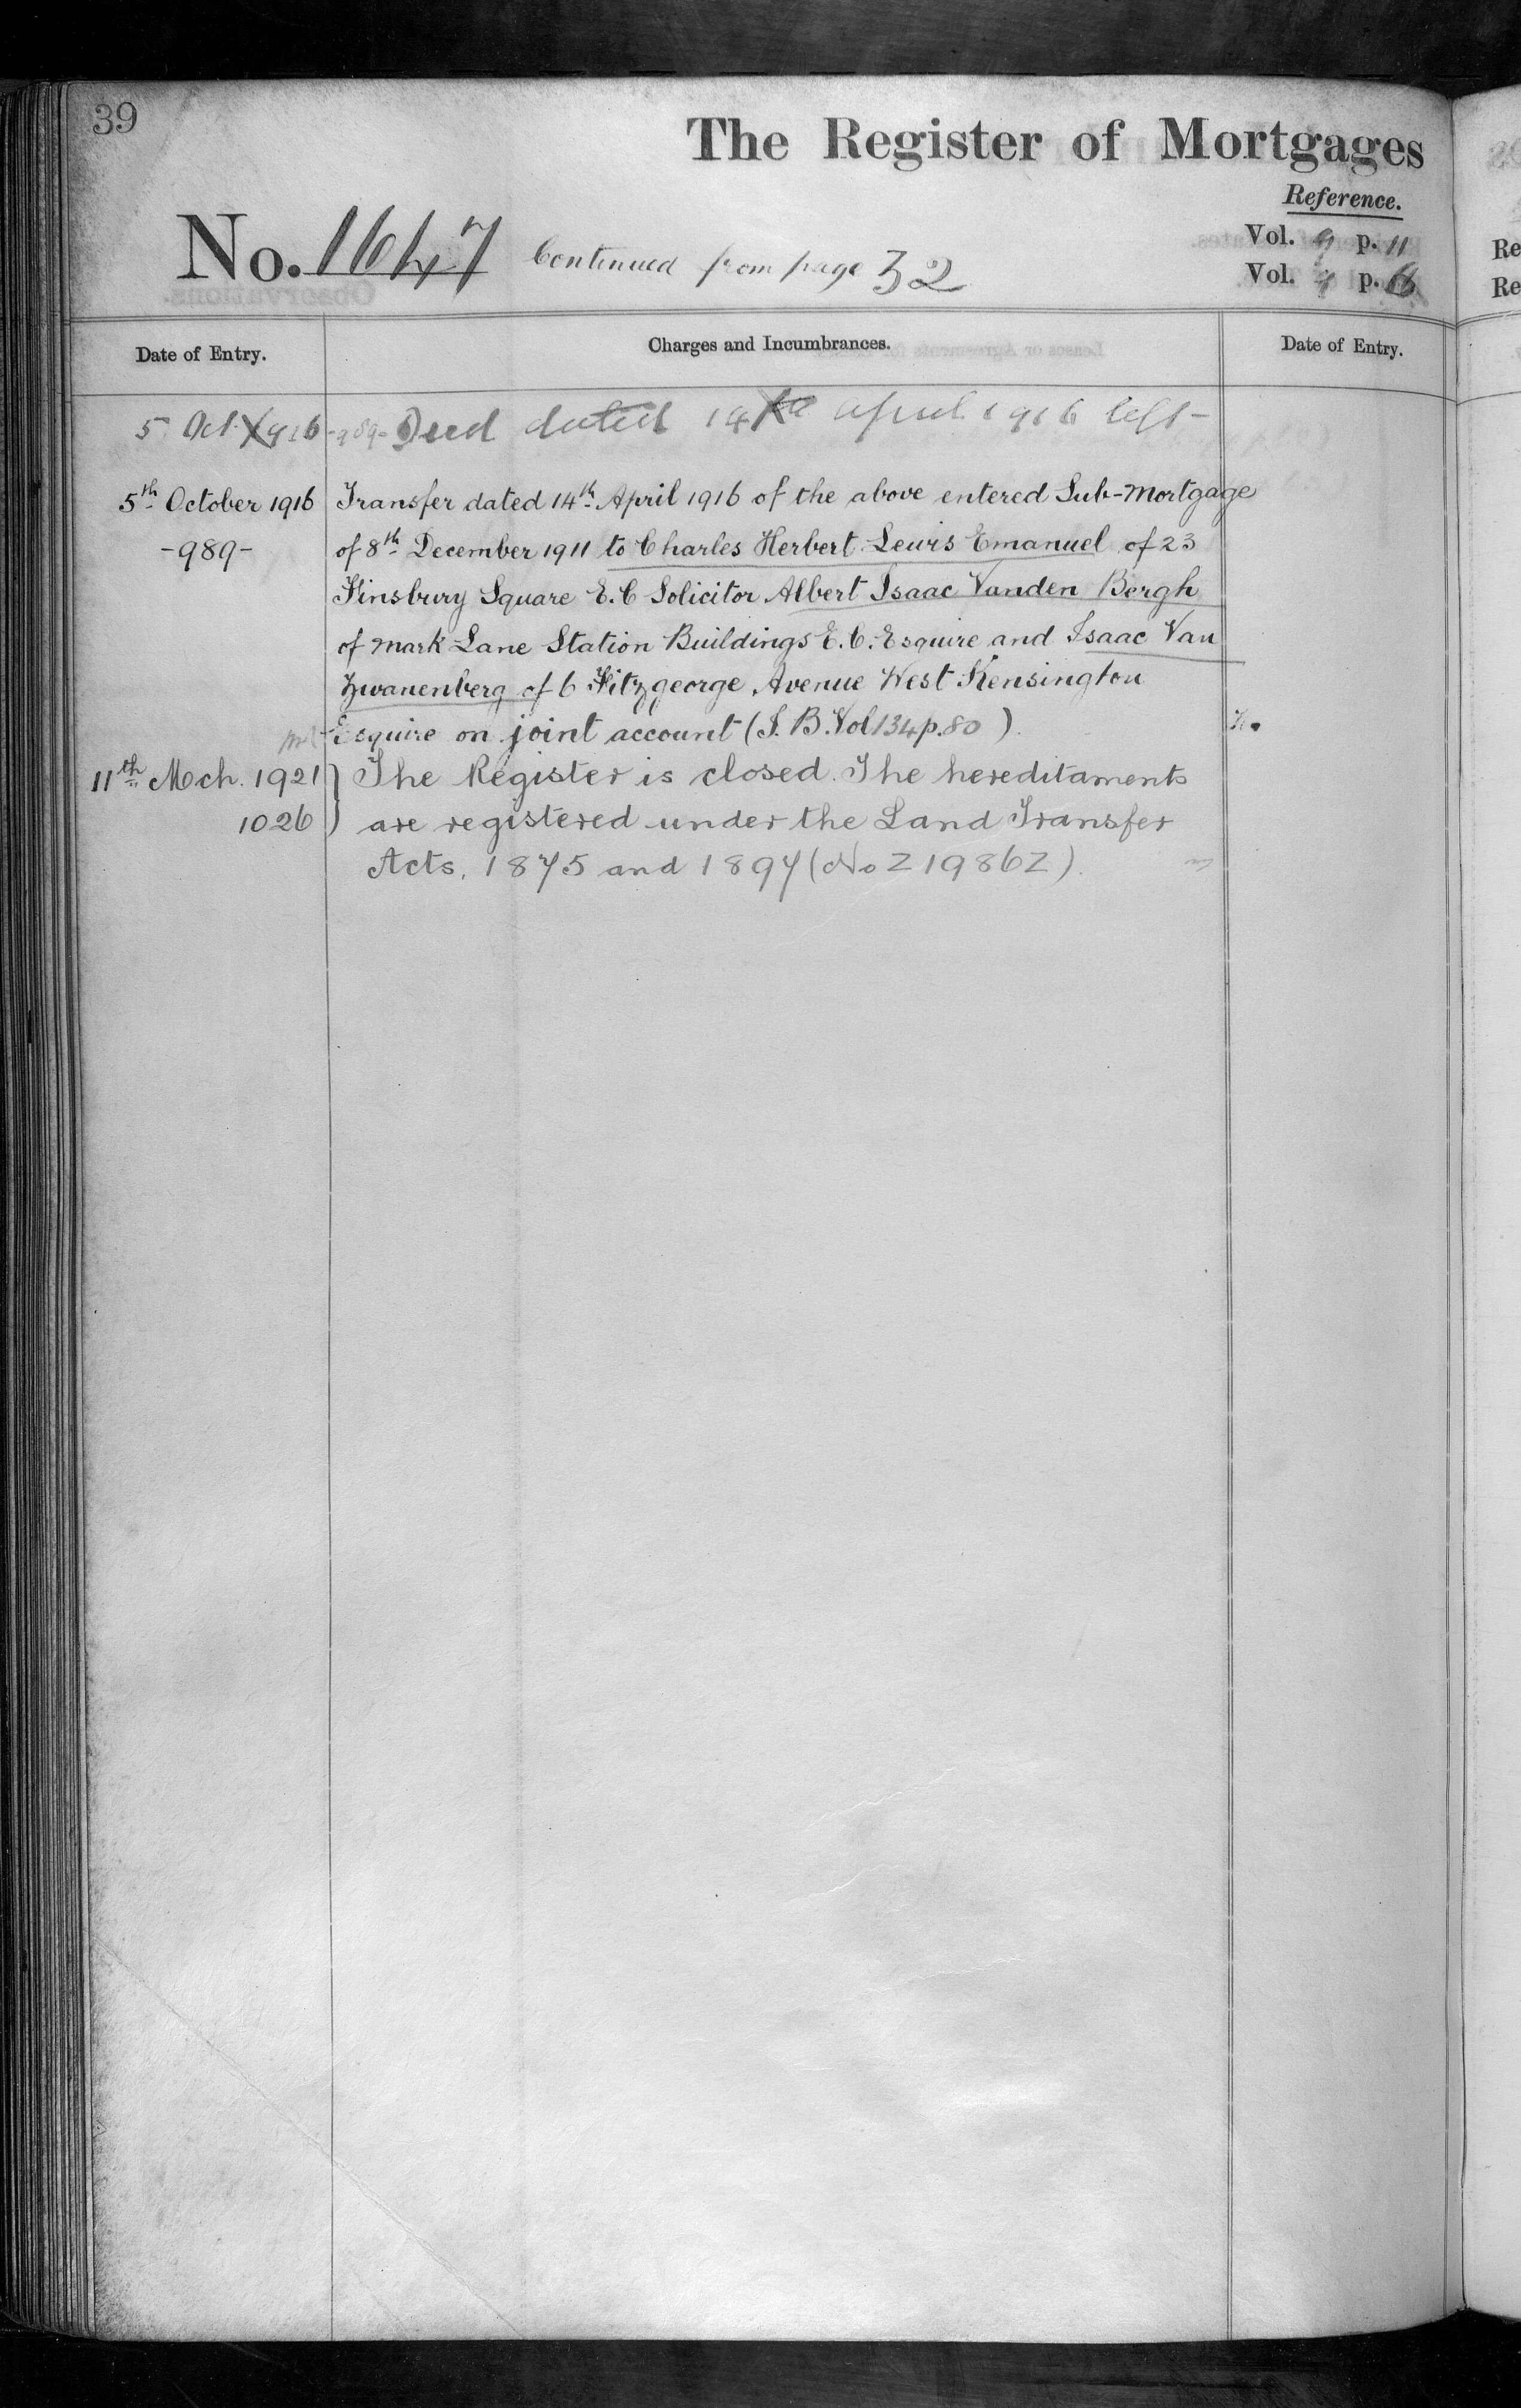 39
The Register of Mortgages
Reference.
No. 1647 Continued from page 32
Vol. 9 p. 11
Vol. 9 p.
Date of Entry. Charges and Incumbrances. Date of Entry.
5 Oct 1916 -989- Deed dated 14th April 1916 left-
5th October 1916 Transfer dated 14th April 1916 of the above entered Sub-Mortgage
-989- of 8th December 1911 to Charles Herbert Lewis Emanuel of 23
Finsbury Square E.C Solicitor Albert Isaac Vanden Bergh
of Mark Lane Station Buildings E.C. Esquire and Isaac Van
Zwanenberg of 6 Fitzgeorge Avenue West Kensington
Esquire on joint account (I.B. Vol 134 p. 80)
11th Mch. 1921 } The Register is closed. The hereditaments
1026 } are registered under the Land Transfer
Acts, 1875 and 1897 (No 219862).
Re
Re